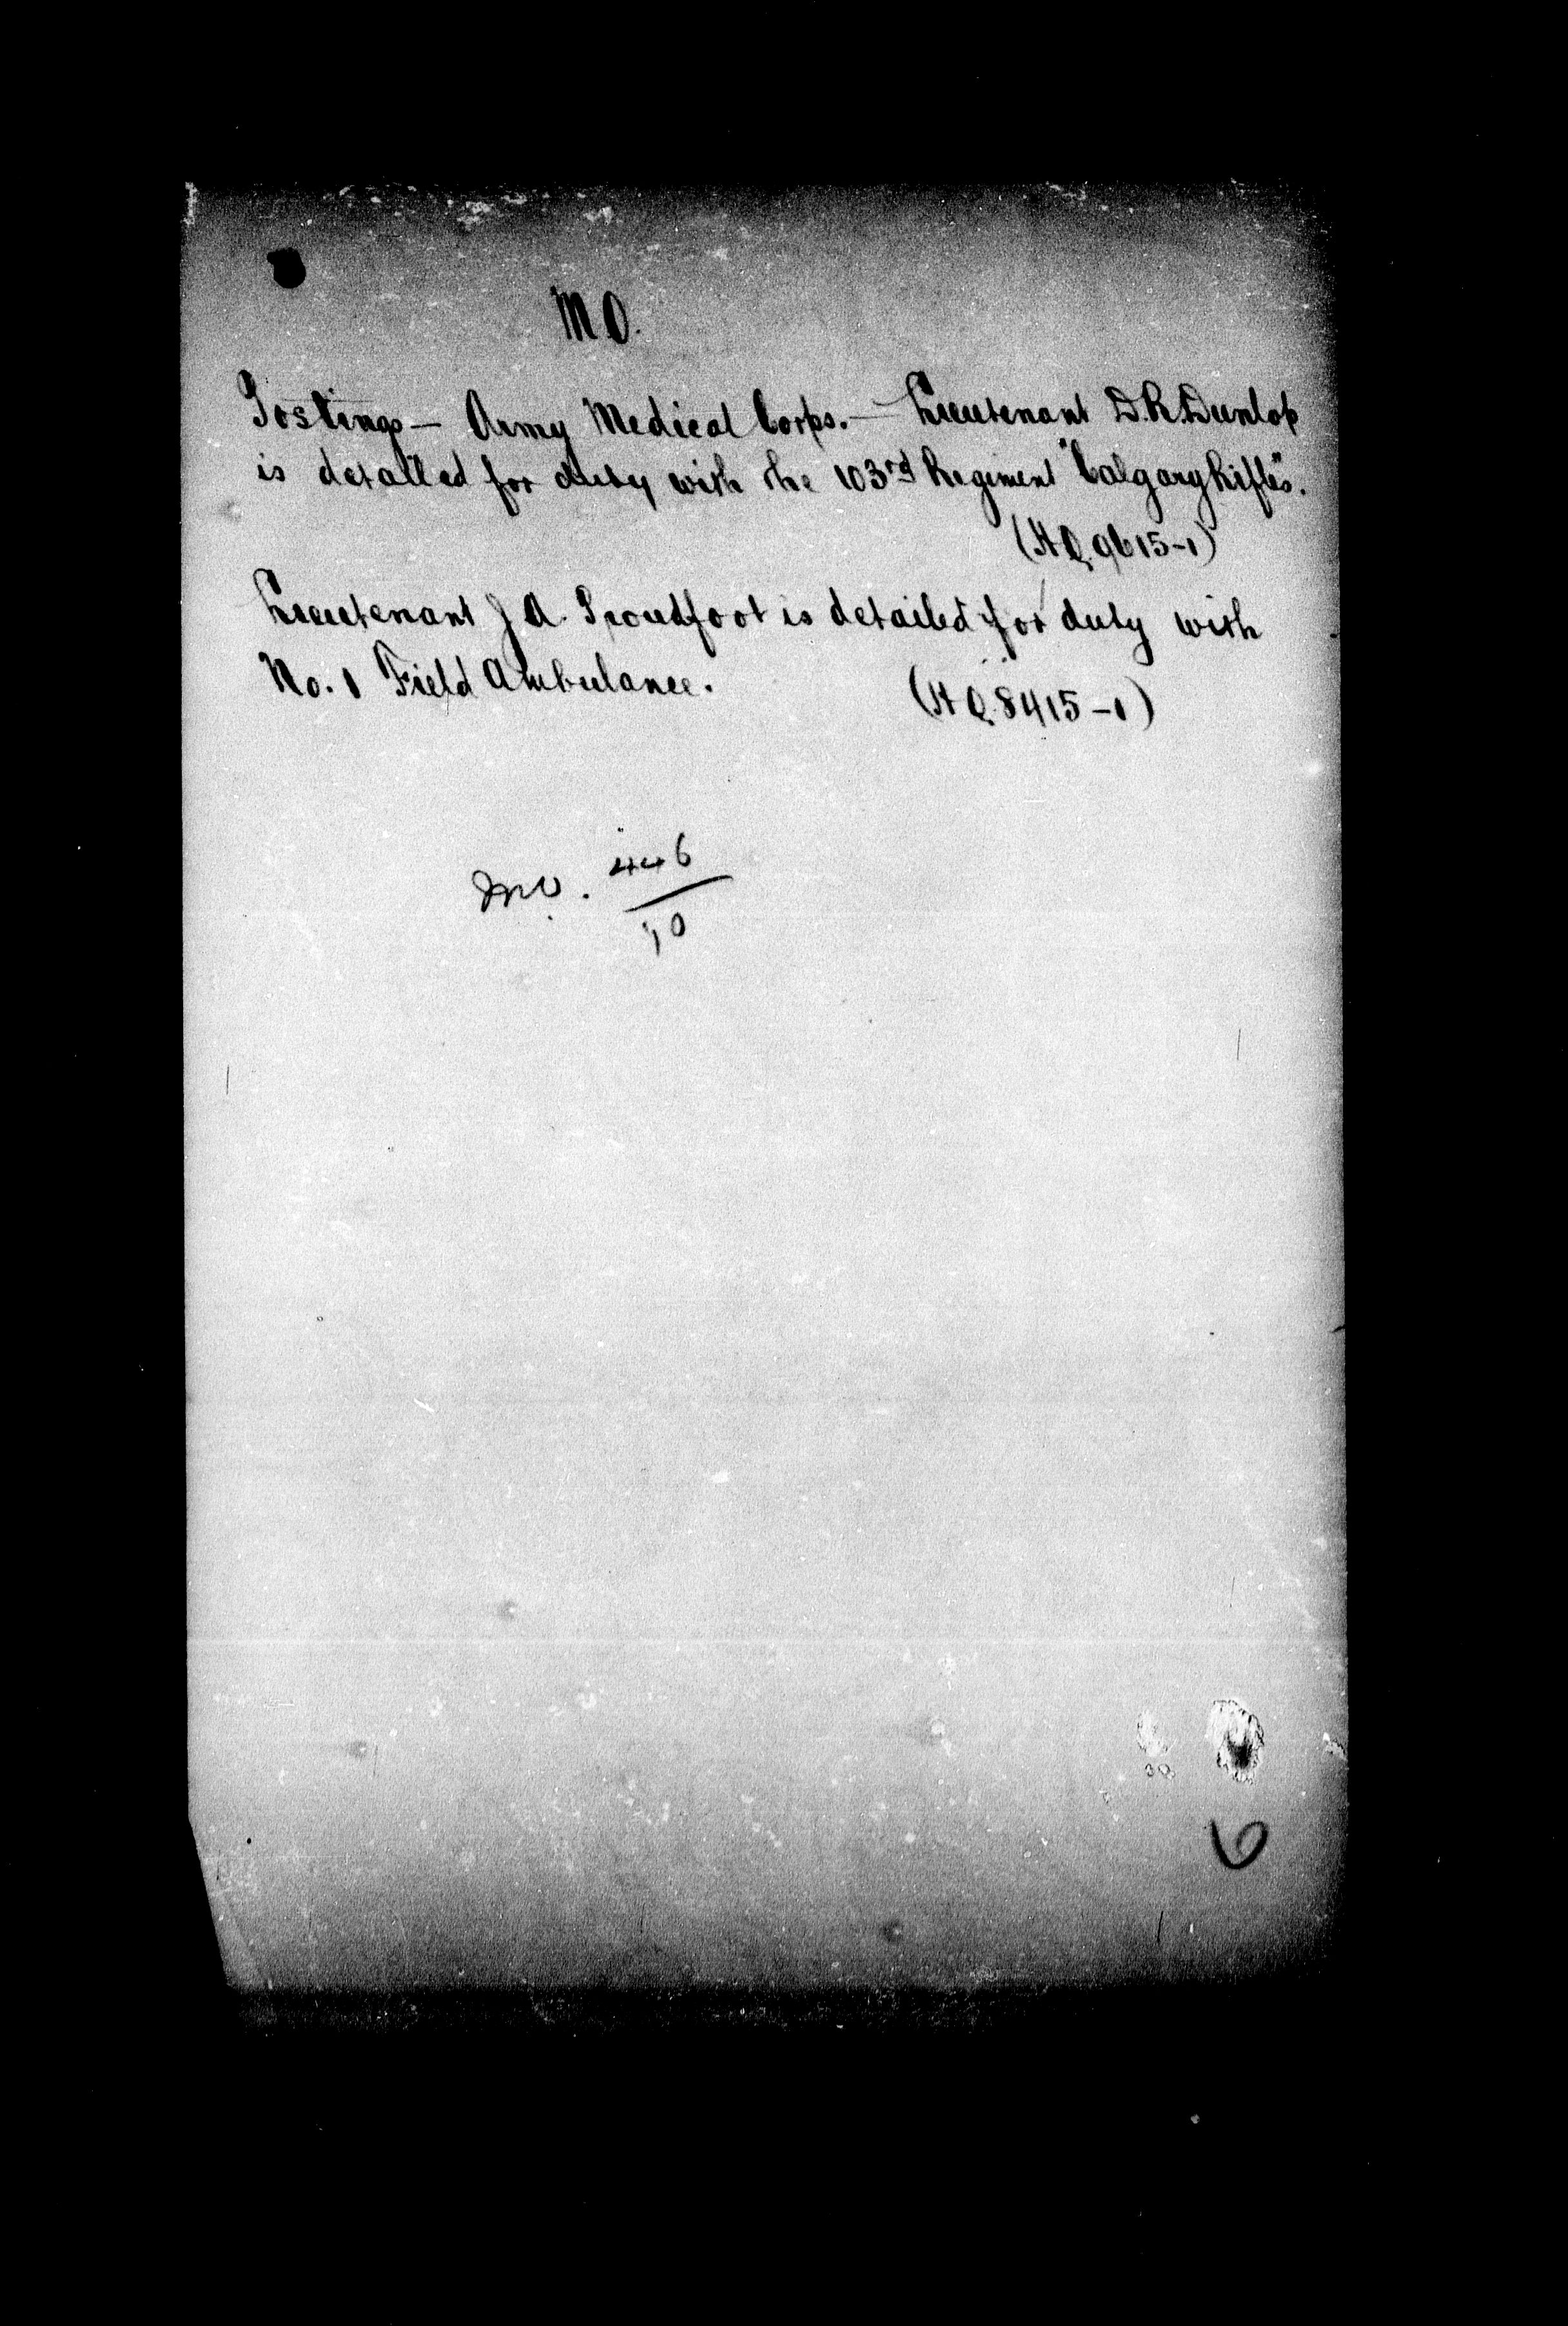 M.O.
Postings — Army Medical Corps. — Lieutenant D.R. Dunlop
is detailed for duty with the 103rd Regiment "Calgary Rifles".
(H Q. 9615-1)
Lieutenant J A. Proudfoot is detailed for duty with
No. 1 Field Ambulance. (H Q. 8415-1)
M.O. 446
10
6